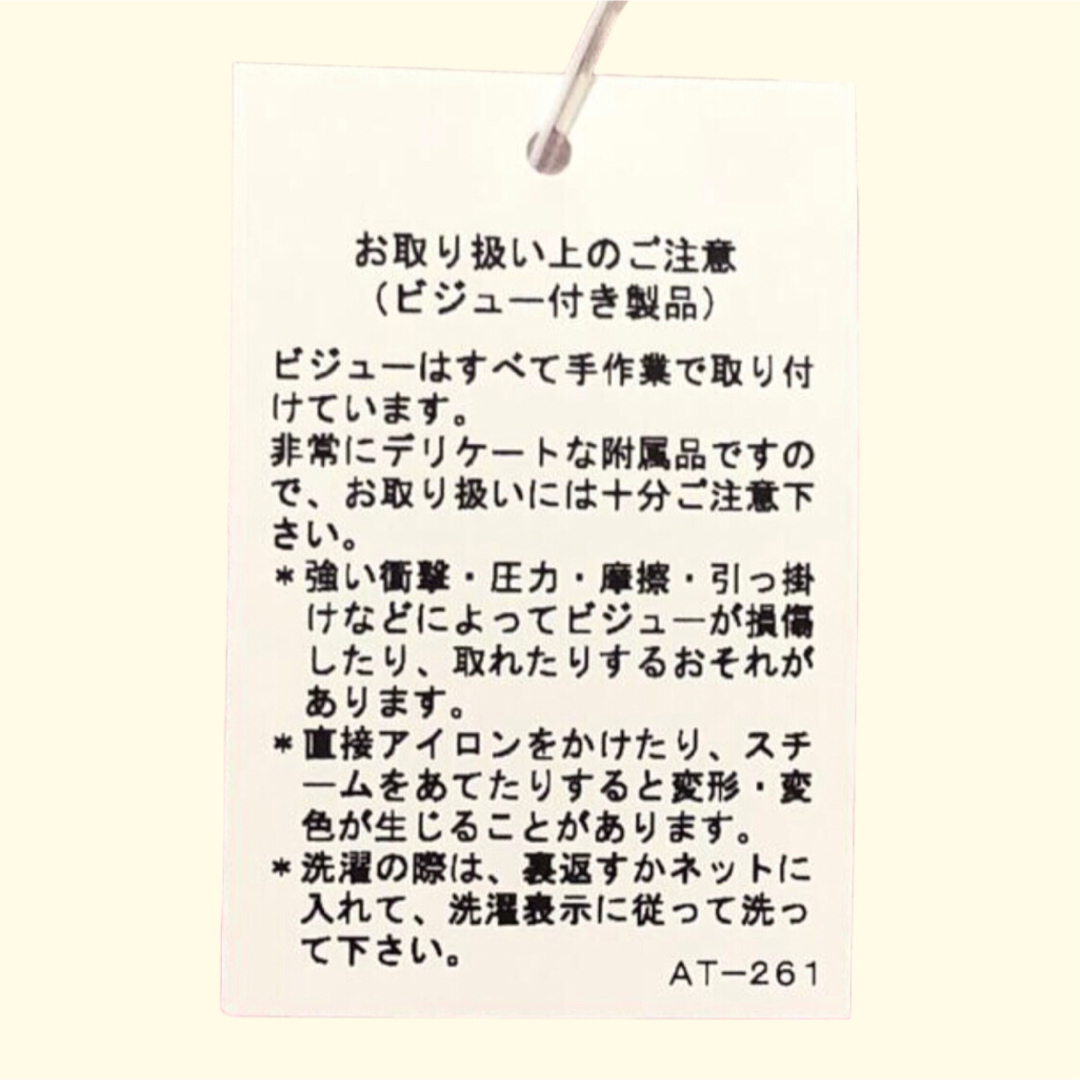 お取り扱い上のご注意
（ビジュー付き製品）
ビジューはすべて手作業で取り付
けています。
非常にデリケートな附属品ですの
で、お取り扱いには十分ご注意下
さい。
＊強い衝撃・圧力・摩擦・引っ掛
けなどによってビジューが損傷
したり、取れたりするおそれが
あります。
＊直接アイロンをかけたり、スチ
ームをあてたりすると変形・変
色が生じることがあります。
＊洗濯の際は、裏返すかネットに
入れて、洗濯表示に従って洗っ
て下さい。
AT－261